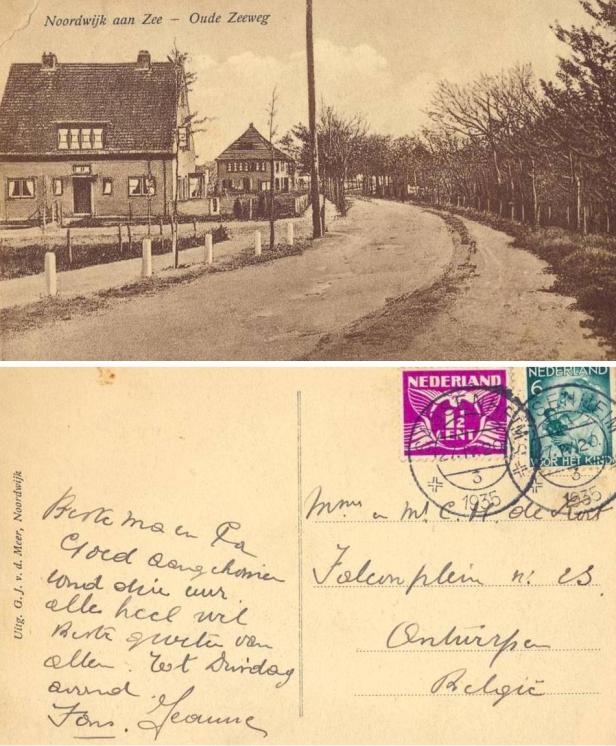 Noordwijk aan Zee – Oude Zeeweg
NEDERLAND
1½
CENT
NEDERLAND
6
VOOR HET KIND
3
1935
3
1935
Uitg. G. J. v. d. Meer, Noordwijk
Beste ma en Pa
Goed aangekomen
rond drie uur.
alles heel wel
Beste groeten van
allen. Tot Dinsdag
avond.
Fons. Jeanne
Mme en Mr C. H. de
Falconplein n: 23
Antwerpen
België